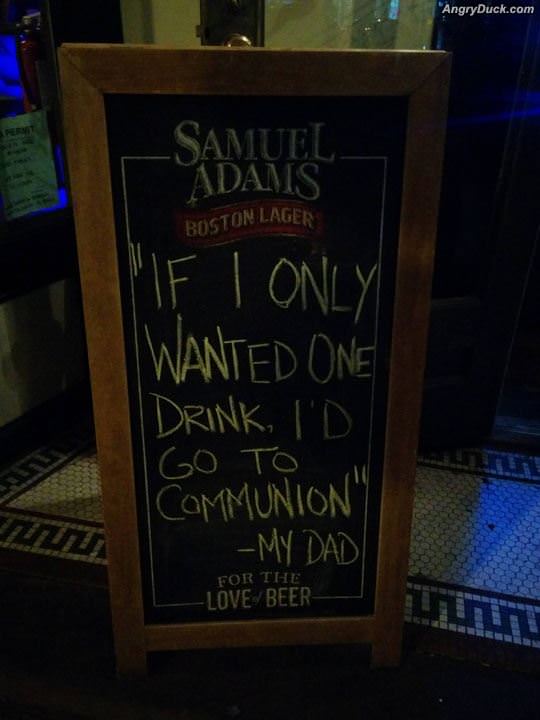 AngryDuck.com
PERMIT
SAMUEL
ADAMS
BOSTON LAGER
"IF I ONLY
WANTED ONE
DRINK, I'D
GO TO
COMMUNION"
-MY DAD
FOR THE
LOVE of BEER